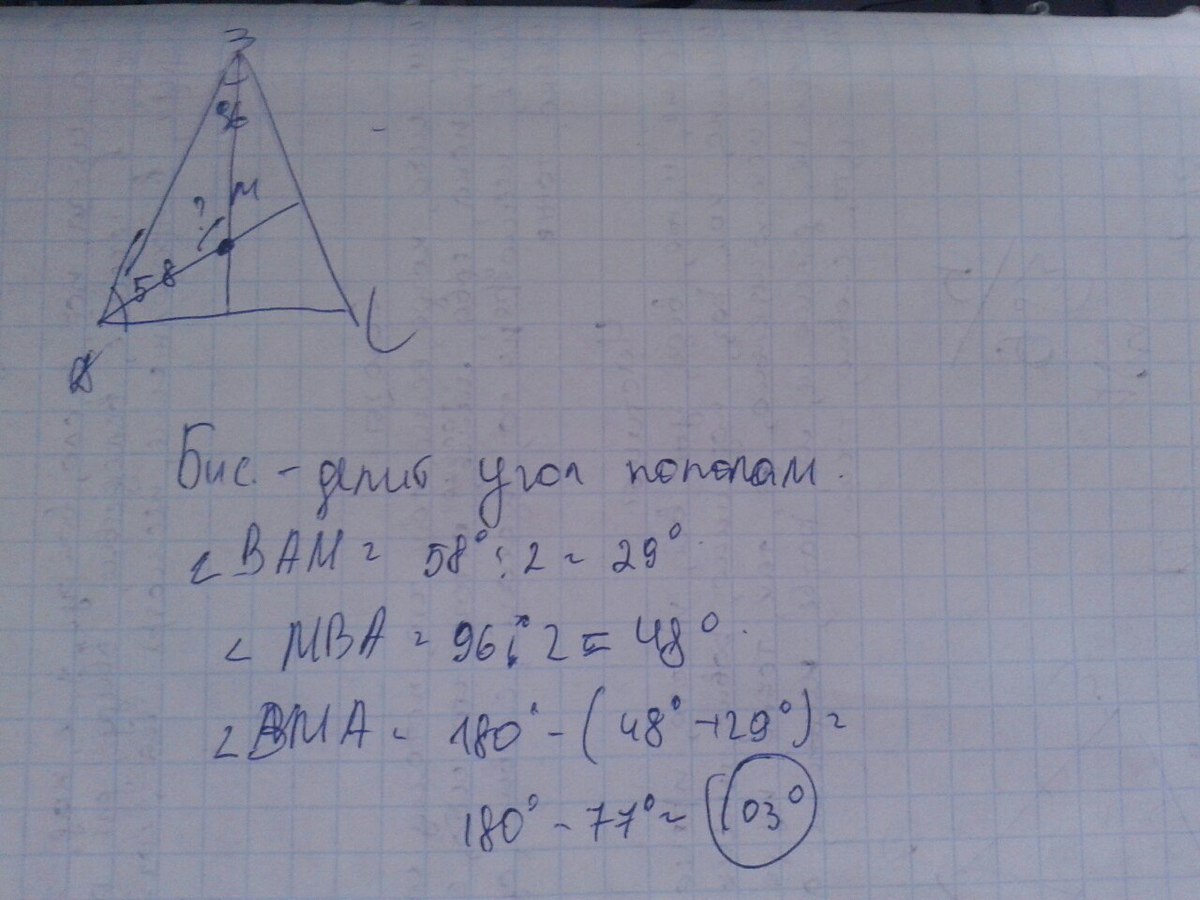 B
96
M
?
58
A
C
Бис. - делит угол пополам.
∠BAM = 58° : 2 = 29°.
∠ MBA = 96 : 2 = 48°.
∠BMA = 180° - (48° + 29°) =
180° - 77° = 103°